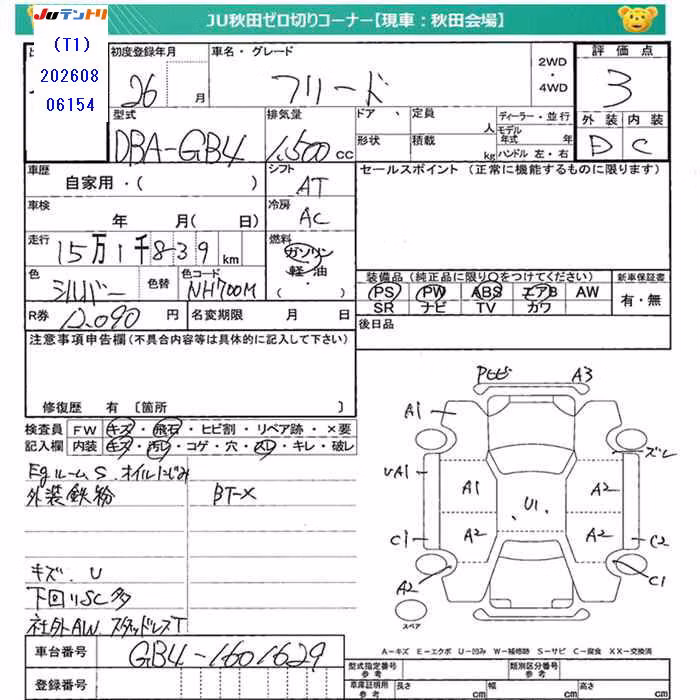 Juテントリ
JU秋田ゼロ切りコーナー【現車：秋田会場】
(T1)
202608
06154
初度登録年月
26 月
車名・グレード
フリード
2WD
・
4WD
評価点
3
外装 内装
D C
型式
DBA-GB4
排気量
1,500 cc
ドア
形状
定員 人
積載 kg
ディーラー・並行
モデル年式 年
ハンドル 左・右
車歴
自家用・( )
シフト
AT
セールスポイント（正常に機能するものに限ります）
車検
年 月( 日)
冷房
AC
走行
15万1千839 km
燃料
ガソリン
軽・油
( )
色
シルバー
色替
色コード
NH700M
装備品（純正品に限り○をつけてください）
PS PW ABS エアB AW
SR ナビ TV カワ
新車保証書
有・無
R券 12,090 円
名変期限 月 日
後日品
注意事項申告欄(不具合内容等は具体的に記入して下さい)
修復歴 有 〔箇所 〕
検査員
記入欄
FW キズ・飛石・ヒビ割・リペア跡・×要
内装 キズ・汚レ・コゲ・穴・スレ・キレ・破レ
Egルーム S、オイルにじみ
外装鉄粉
BT-X
キズ、U
下回りSC多
社外AW スタッドレスT
Pヒビ A3
A1
ズレ
UA1
A1
A2
U1
C1
A2
A2
C2
A2
C1
スペア
A-キズ E-エクボ U-凹み W-補修跡 S-サビ C-腐食 XX-交換済
車台番号
GB4-1601629
登録番号
型式指定番号
参考
類別区分番号
車庫証明用
参考
長さ cm 幅 cm 高さ cm